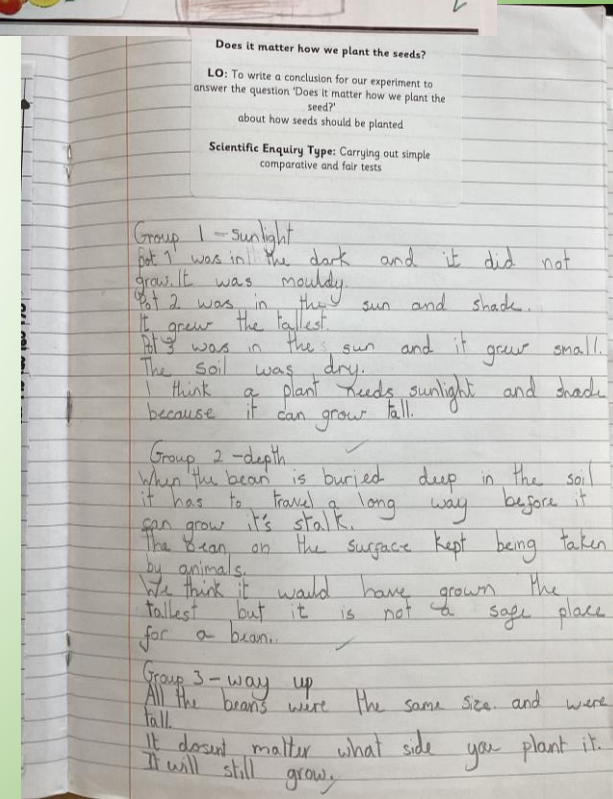 Does it matter how we plant the seeds?
LO: To write a conclusion for our experiment to
answer the question 'Does it matter how we plant the
seed?'
about how seeds should be planted
Scientific Enquiry Type: Carrying out simple
comparative and fair tests
Group 1 - sunlight
Pot 1 was in the dark and it did not
grow. It was mouldy.
Pot 2 was in the sun and shade.
It grew the tallest.
Pot 3 was in the sun and it grew small.
The soil was dry.
I think a plant needs sunlight and shade
because it can grow tall.
Group 2 - depth
When the bean is buried deep in the soil
it has to travel a long way before it
can grow it's stalk.
The bean on the surface kept being taken
by animals.
We think it would have grown the
tallest but it is not a safe place
for a bean.
Group 3 - way up
All the beans were the same size and were
tall.
It dosent matter what side you plant it.
It will still grow.